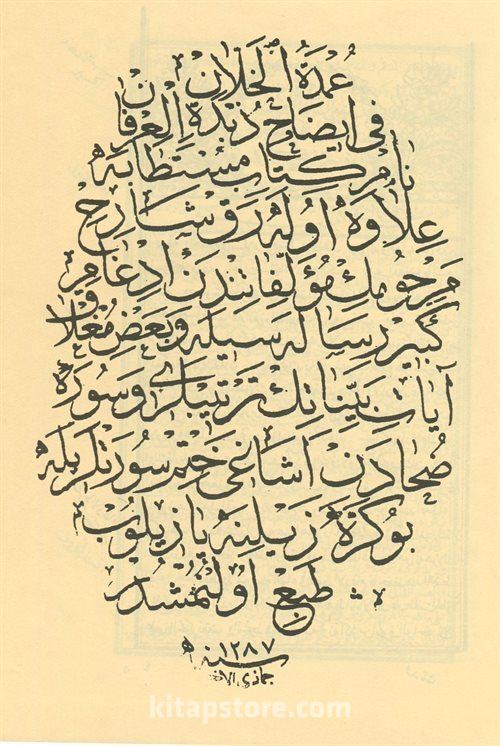 عُمْدَةُ الْخَلَّانِ
فِى اِيضَاحِ زُبْدَةِ الْعِرْفَانِ
نَامْ كِتَابِ مُسْتَطَابَه
عِلَاوَهْ اُولَهْ رَقْ شَارِحِ
مَرْحُومِكْ مُؤَلَّفَاتِنْدَنْ اِدْغَامِ
كَبِيرْ رِسَالَه سِيلَه وَبَعْضِ مُغْلَاقْ
آيَاتِ بَيِّنَاتِكْ تَرْتِيبْلَرِى وَسُورَۀ
ضُحَادَنْ اَشَاغِى خَتْمِ سُورَتْلَرِيلَه
بُوكَرَّه ذَيْلِنَه يَازِيلُوبْ
طَبْعْ اُولُنْمُشْدُرْ
سنه ١٢٨٧
جمادى الاخر
kitapstore.com